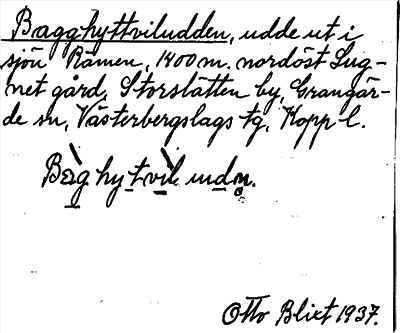 Bagghyttviludden, udde ut i
sjön Rämen, 1400 m. nordöst Lug-
net gård, Storslätten by, Grangär-
de sn, Västerbergslags tg, Kopp l.
Bàghytvìludn̥.
Otto Blixt 1937.